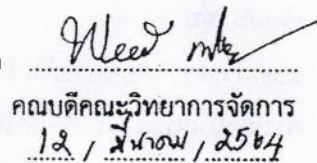 คณบดีคณะวิทยาการจัดการ
12 / มีนาคม / 2564